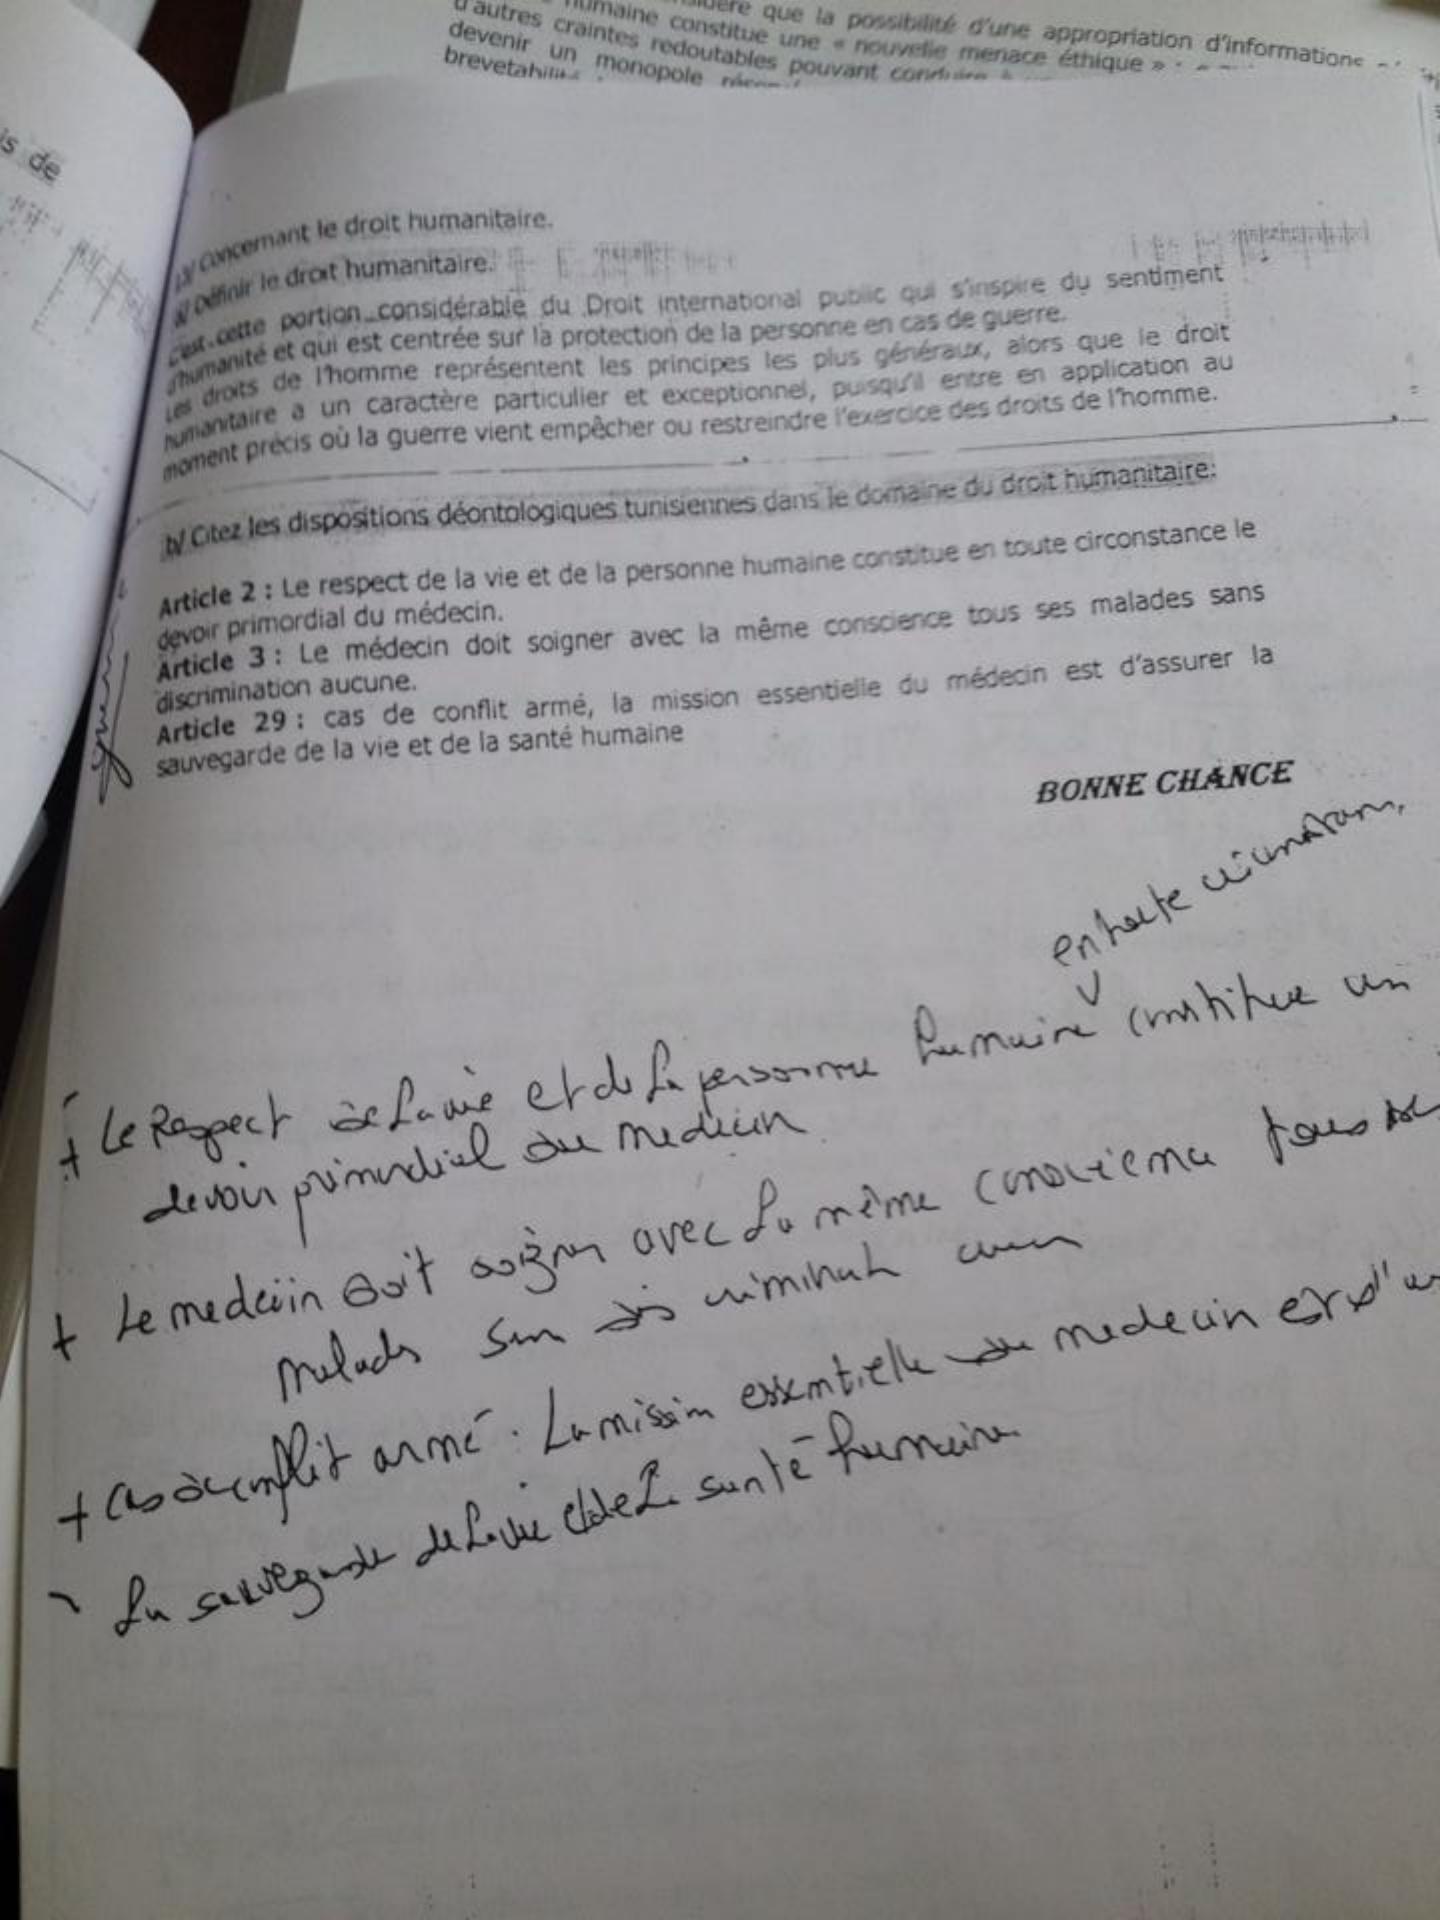 que la possibilité d'une appropriation d'informations
humaine constitue une « nouvelle menace éthique »
d'autres craintes redoutables pouvant conduire à
devenir un monopole
is de
Concernant le droit humanitaire.
a/ Définir le droit humanitaire.
C'est cette portion considérable du Droit international public qui s'inspire du sentiment
d'humanité et qui est centrée sur la protection de la personne en cas de guerre.
Les droits de l'homme représentent les principes les plus généraux, alors que le droit
humanitaire a un caractère particulier et exceptionnel, puisqu'il entre en application au
moment précis où la guerre vient empêcher ou restreindre l'exercice des droits de l'homme.
b/ Citez les dispositions déontologiques tunisiennes dans le domaine du droit humanitaire:
Article 2 : Le respect de la vie et de la personne humaine constitue en toute circonstance le
devoir primordial du médecin.
Article 3 : Le médecin doit soigner avec la même conscience tous ses malades sans
discrimination aucune.
Article 29 : cas de conflit armé, la mission essentielle du médecin est d'assurer la
sauvegarde de la vie et de la santé humaine
BONNE CHANCE
en toute
+ Le Respect de la vie et de la personne humaine constitue un
devoir primordial du medecin
+ Le medecin doit soigner avec la même conscience tous
malades sans
+ Cas de conflit armé. La mission essentielle du medecin est d'
La sauvegarde de la vie et de la santé humaine